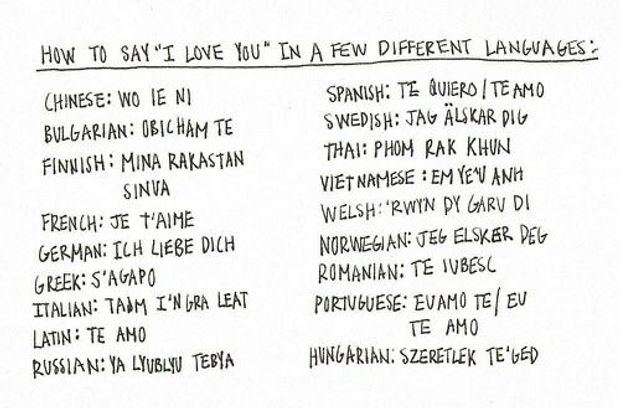 HOW TO SAY "I LOVE YOU" IN A FEW DIFFERENT LANGUAGES:-
CHINESE: WO IE NI
BULGARIAN: OBICHAM TE
FINNISH: MINA RAKASTAN
SINVA
FRENCH: JE T'AIME
GERMAN: ICH LIEBE DICH
GREEK: S'AGAPO
ITALIAN: TAIM I'NGRA LEAT
LATIN: TE AMO
RUSSIAN: YA LYUBLYU TEBYA
SPANISH: TE QUIERO / TE AMO
SWEDISH: JAG ÄLSKAR DIG
THAI: PHOM RAK KHUN
VIETNAMESE: EM YE'U ANH
WELSH: 'RWYN DY GARU DI
NORWEGIAN: JEG ELSKER DEG
ROMANIAN: TE IUBESC
PORTUGUESE: EU AMO TE / EU
TE AMO
HUNGARIAN: SZERETLEK TE'GED